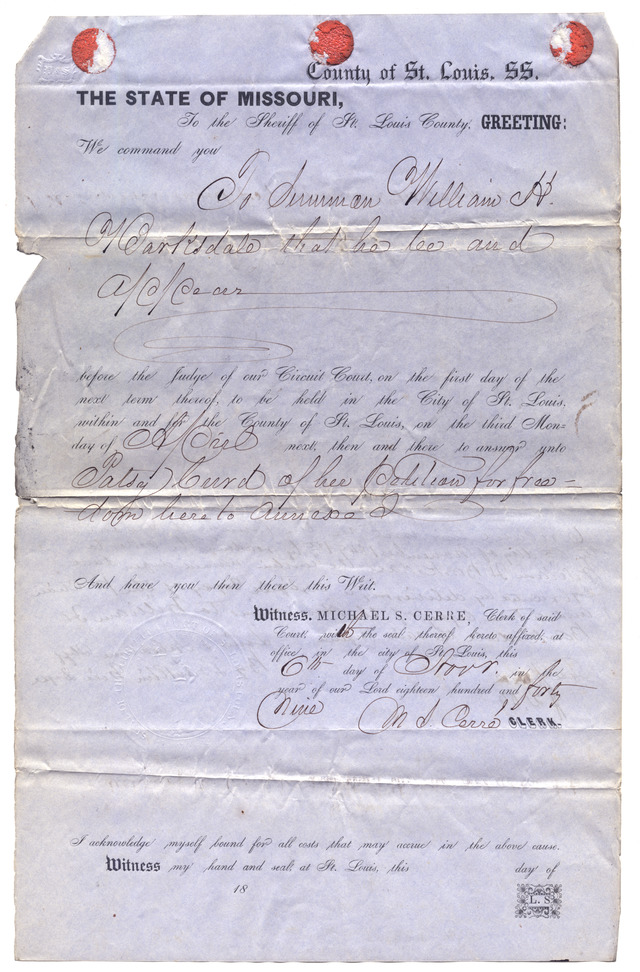 County of St. Louis, SS.
THE STATE OF MISSOURI,
To the Sheriff of St. Louis County, GREETING:
We command you
To Summon William H.
Barksdale that he be and
appear
before the Judge of our Circuit Court, on the first day of the
next term thereof, to be held in the City of St. Louis,
within and for the County of St. Louis, on the third Mon-
day of April next, then and there to answer unto
Patsy Curd of her petition for free-
dom hereto annexed
And have you then there this Writ.
Witness. MICHAEL S. CERRE, Clerk of said
Court, with the seal thereof hereto affixed, at
office in the city of St. Louis, this
6th day of Novr. in the
year of our Lord eighteen hundred and forty
nine M. S. Cerré CLERK.
I acknowledge myself bound for all costs that may accrue in the above cause.
Witness my hand and seal, at St. Louis, this day of
18
L. S